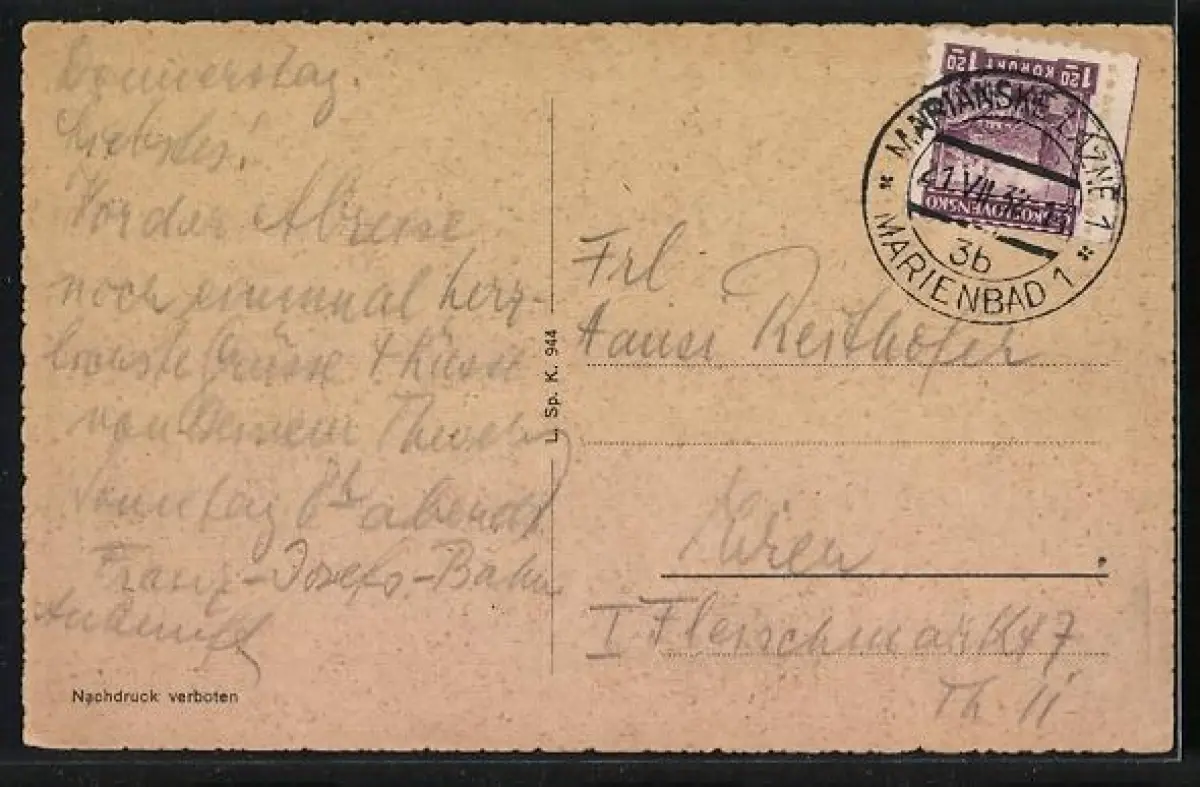 Donnerstag.
Liebstes!
Vor der Abreise
noch einmal herz-
lichste Grüsse + Küsse
von Deinem
Sonntag 8h abends
Franz-Josefs-Bahn
Ankunft
Nachdruck verboten
L. Sp. K. 944
1.20 KORUNY 1.20
ČESKOSLOVENSKO
* MARIÁNSKÉ LÁZNĚ 1 *
VII
3b
MARIENBAD 1
Frl
Hansi Reithofer
Wien
I Fleischmarkt 7
Th. 11